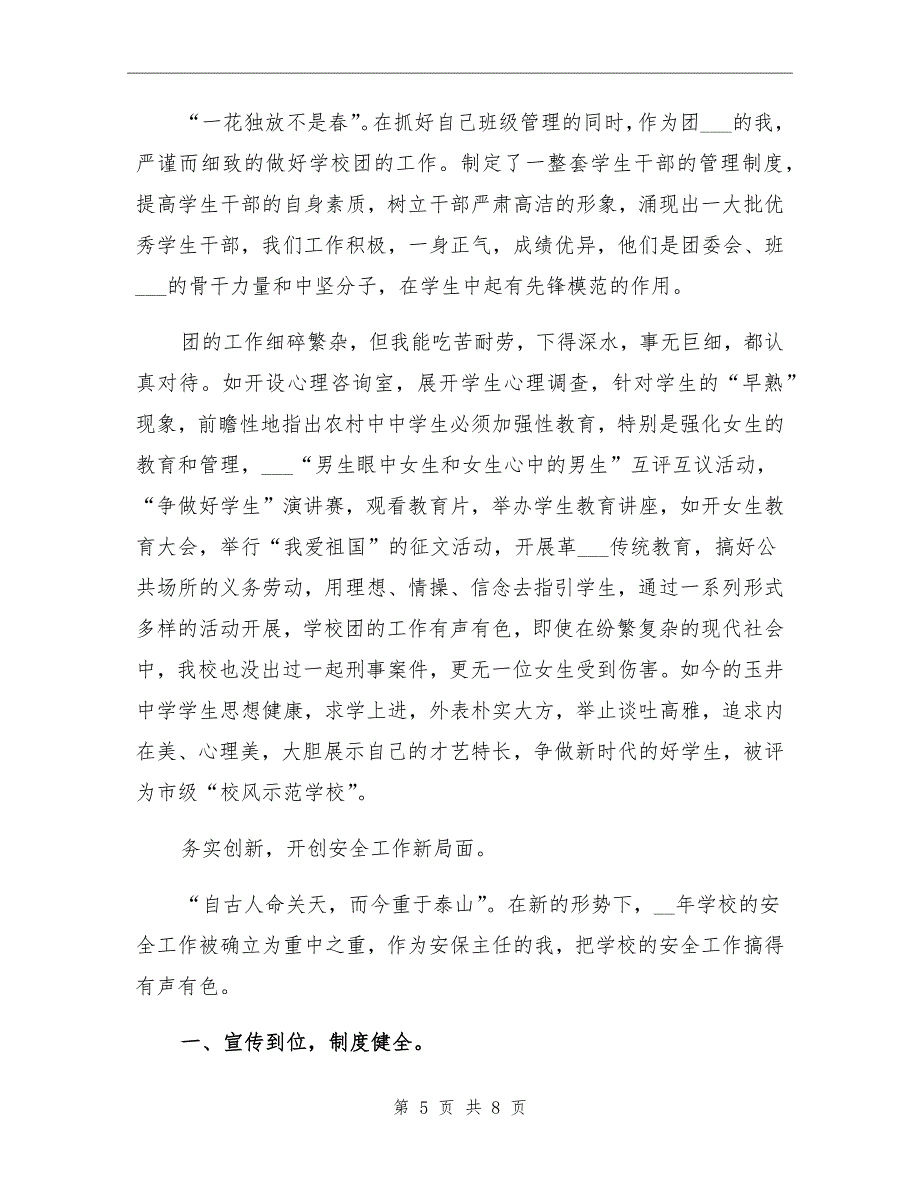 “一花独放不是春”。在抓好自己班级管理的同时，作为团___的我，
严谨而细致的做好学校团的工作。制定了一整套学生干部的管理制度，
提高学生干部的自身素质，树立干部严肃高洁的形象，涌现出一大批优
秀学生干部，我们工作积极，一身正气，成绩优异，他们是团委会、班
___的骨干力量和中坚分子，在学生中起有先锋模范的作用。
团的工作细碎繁杂，但我能吃苦耐劳，下得深水，事无巨细，都认
真对待。如开设心理咨询室，展开学生心理调查，针对学生的“早熟”
现象，前瞻性地指出农村中中学生必须加强性教育，特别是强化女生的
教育和管理，___“男生眼中女生和女生心中的男生”互评互议活动，
“争做好学生”演讲赛，观看教育片，举办学生教育讲座，如开女生教
育大会，举行“我爱祖国”的征文活动，开展革___传统教育，搞好公
共场所的义务劳动，用理想、情操、信念去指引学生，通过一系列形式
多样的活动开展，学校团的工作有声有色，即使在纷繁复杂的现代社会
中，我校也没出过一起刑事案件，更无一位女生受到伤害。如今的玉井
中学学生思想健康，求学上进，外表朴实大方，举止谈吐高雅，追求内
在美、心理美，大胆展示自己的才艺特长，争做新时代的好学生，被评
为市级“校风示范学校”。
务实创新，开创安全工作新局面。
“自古人命关天，而今重于泰山”。在新的形势下，__年学校的安
全工作被确立为重中之重，作为安保主任的我，把学校的安全工作搞得
有声有色。
一、宣传到位，制度健全。
第 5 页 共 8 页